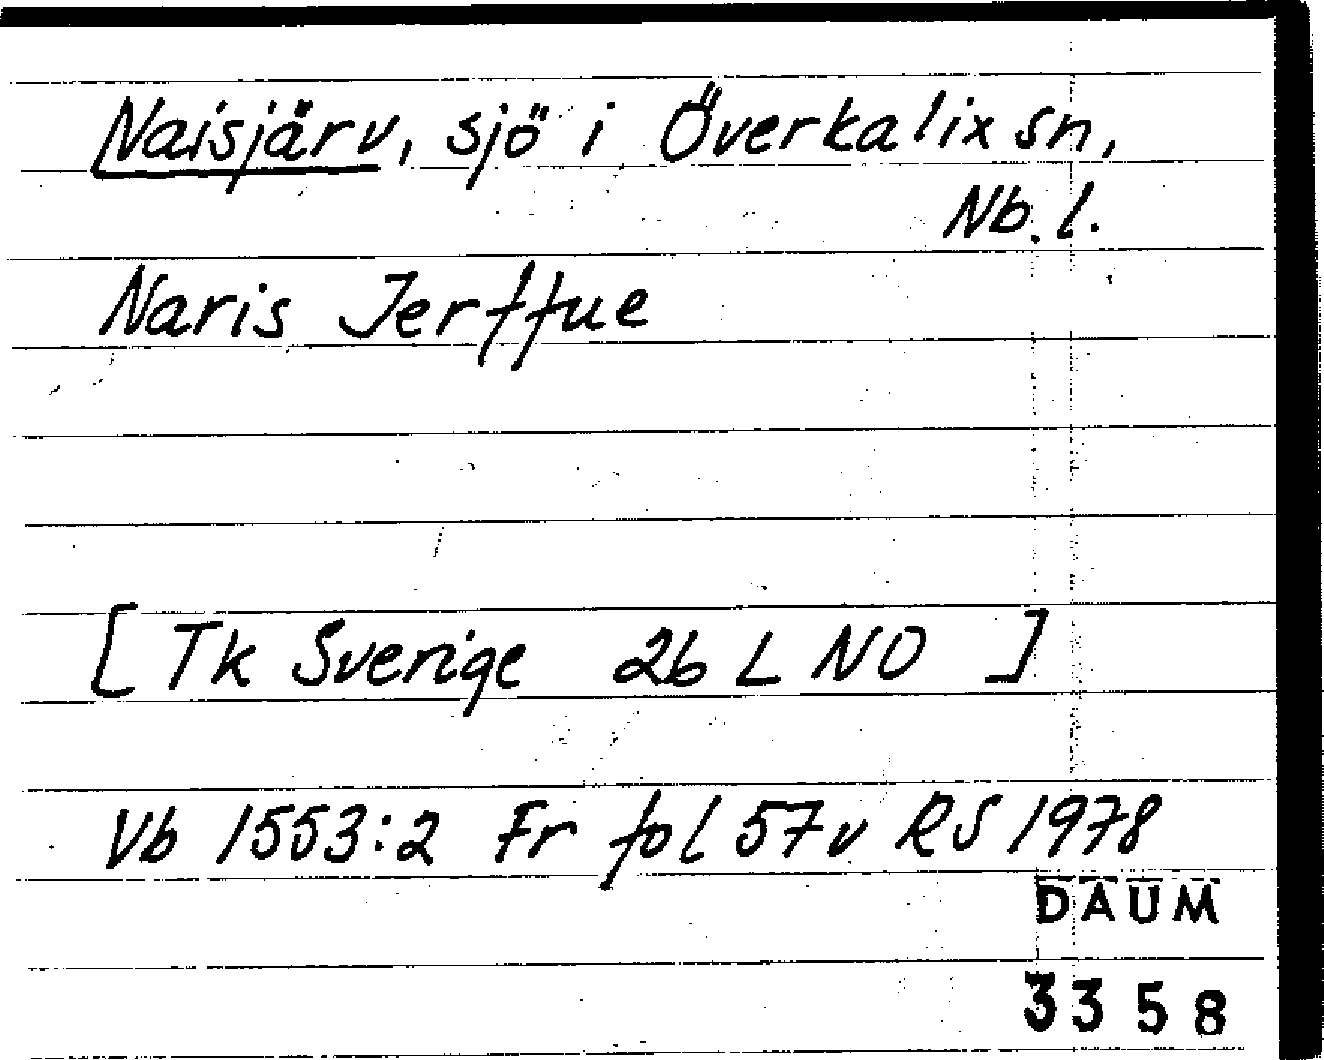 Naisjärv, sjö i Överkalix sn,
Nb. l.
Naris Jerffue
[ Tk Sverige 26 L NO ]
Vb 1553:2 Fr fol 57v RS 1978
DAUM
3358